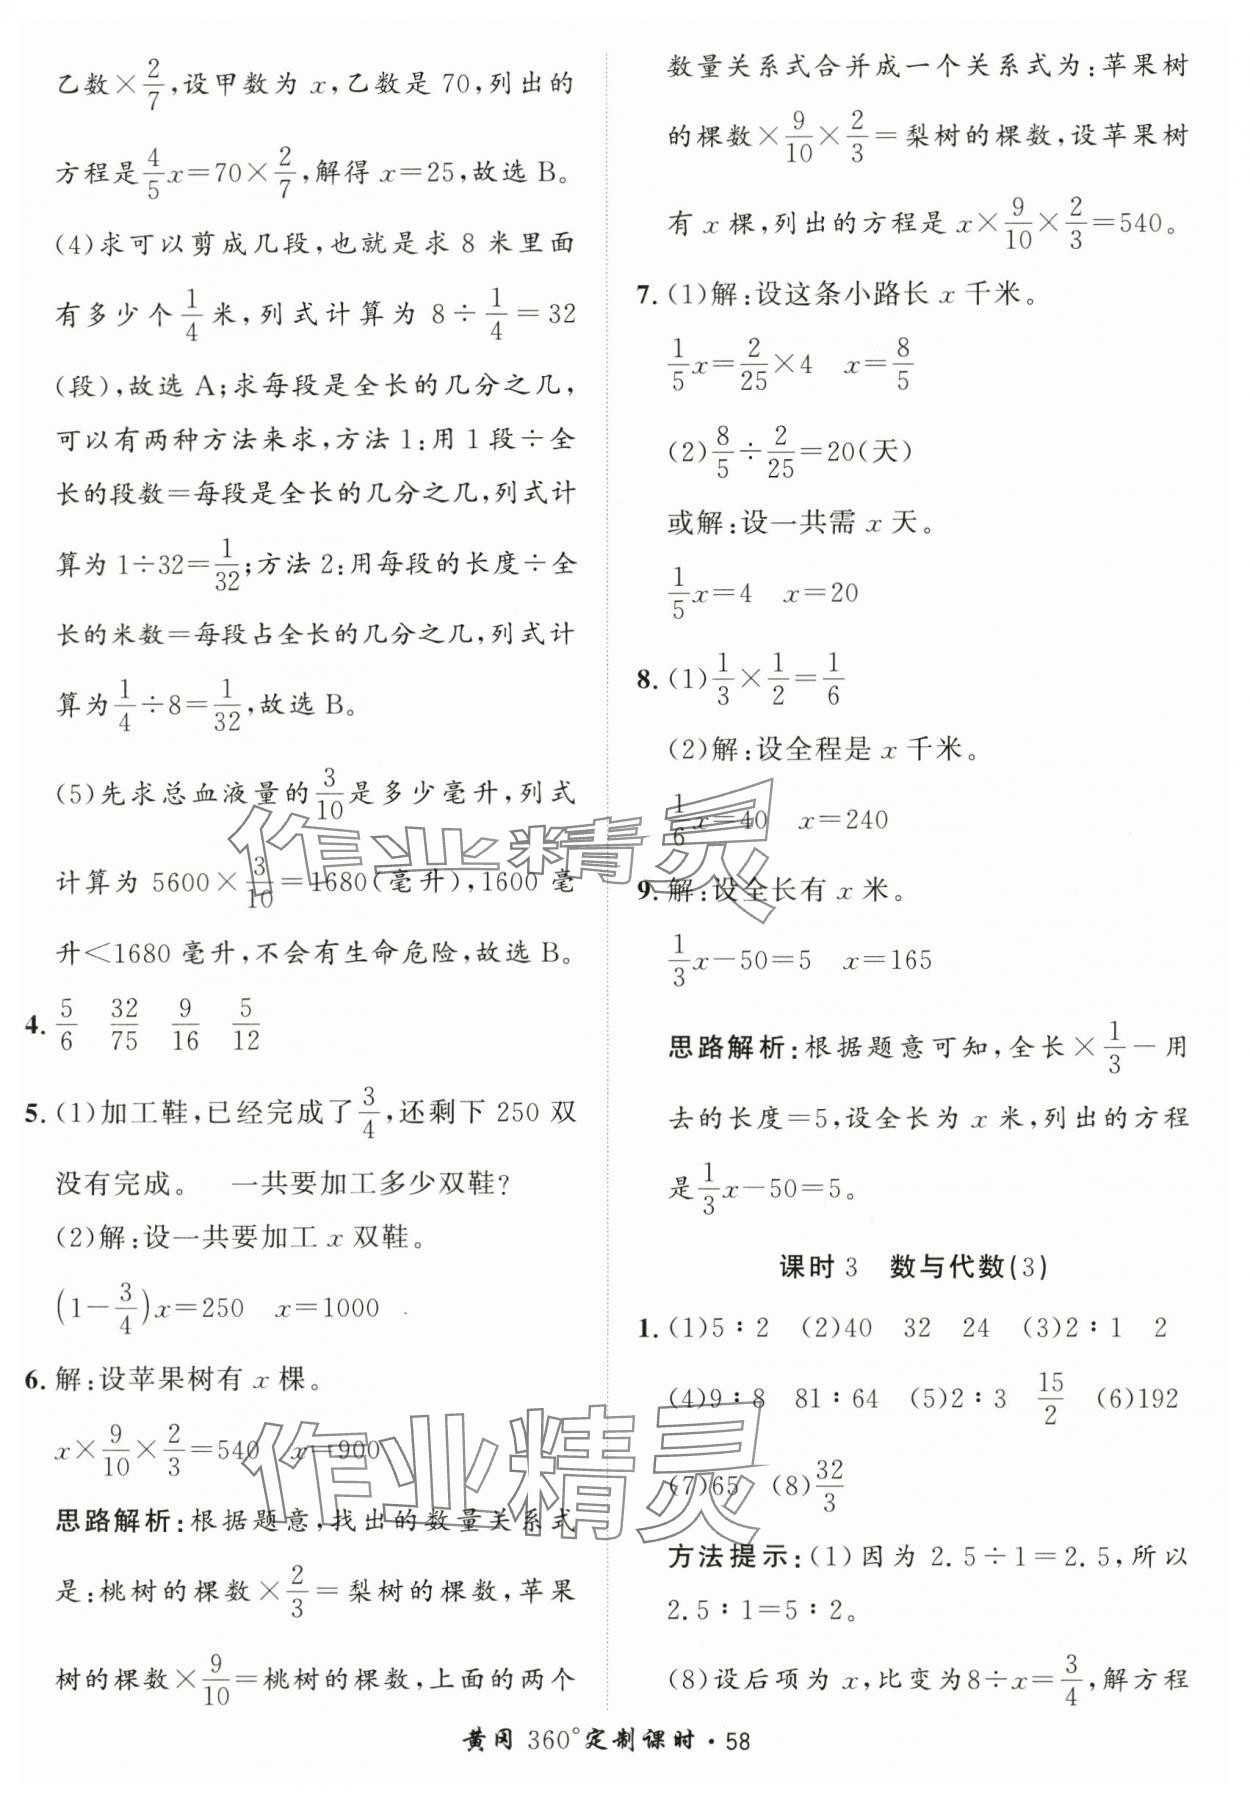 乙数×2/7,设甲数为 x,乙数是 70,列出的
方程是4/5x=70×2/7,解得 x=25,故选 B。
(4)求可以剪成几段,也就是求 8 米里面
有多少个 1/4 米,列式计算为 8÷1/4=32
(段),故选 A;求每段是全长的几分之几,
可以有两种方法来求,方法 1:用 1 段÷全
长的段数=每段是全长的几分之几,列式计
算为 1÷32=1/32;方法 2:用每段的长度÷全
长的米数=每段占全长的几分之几,列式计
算为1/4÷8=1/32,故选 B。
(5)先求总血液量的3/10是多少毫升,列式
计算为 5600×3/10=1680(毫升),1600 毫
升<1680 毫升,不会有生命危险,故选 B。
4. 5/6 32/75 9/16 5/12
5. (1)加工鞋,已经完成了3/4,还剩下 250 双
没有完成。 一共要加工多少双鞋?
(2)解:设一共要加工 x 双鞋。
(1-3/4)x=250 x=1000
6. 解:设苹果树有 x 棵。
x×9/10×2/3=540 x=900
思路解析:根据题意,找出的数量关系式
是:桃树的棵数×2/3=梨树的棵数,苹果
树的棵数×9/10=桃树的棵数,上面的两个
数量关系式合并成一个关系式为:苹果树
的棵数×9/10×2/3=梨树的棵数,设苹果树
有 x 棵,列出的方程是 x×9/10×2/3=540。
7. (1)解:设这条小路长 x 千米。
1/5x=2/25×4 x=8/5
(2)8/5÷2/25=20(天)
或解:设一共需 x 天。
1/5x=4 x=20
8. (1)1/3×1/2=1/6
(2)解:设全程是 x 千米。
1/6x=40 x=240
9. 解:设全长有 x 米。
1/3x-50=5 x=165
思路解析:根据题意可知,全长×1/3-用
去的长度=5,设全长为 x 米,列出的方程
是1/3x-50=5。
课时 3 数与代数(3)
1. (1)5∶2 (2)40 32 24 (3)2∶1 2
(4)9∶8 81∶64 (5)2∶3 15/2 (6)192
(7)65 (8)32/3
方法提示:(1)因为 2.5÷1=2.5,所以
2.5∶1=5∶2。
(8)设后项为 x,比变为8÷x=3/4,解方程
黄冈 360°定制课时·58
作业精灵
作业精灵